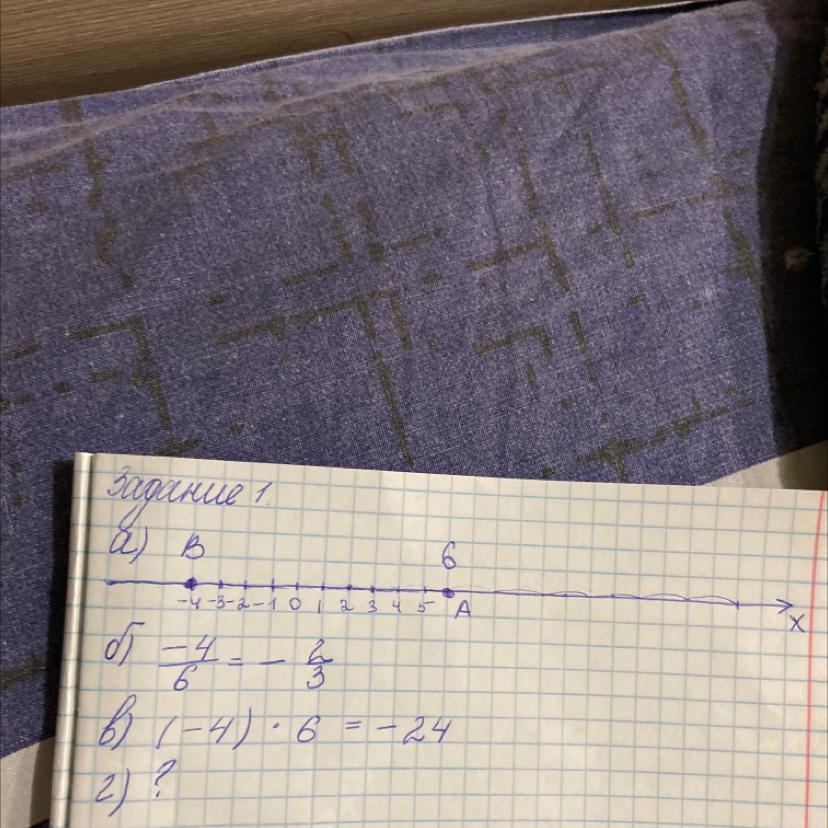 Задание 1.
а) B 6
-4 -3 -2 -1 0 1 2 3 4 5 A x
б) -4/6 = - 2/3
в) (-4) · 6 = -24
г) ?